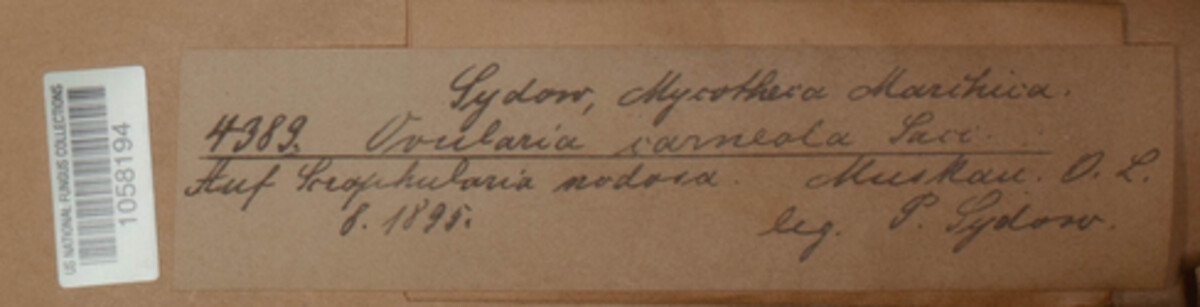 US NATIONAL FUNGUS COLLECTIONS
1058194
Sydow, Mycotheca Marchica.
4389. Ovularia carneola Sacc.
Auf Scrophularia nodosa. Muskau. O. L.
8. 1895. leg. P. Sydow.